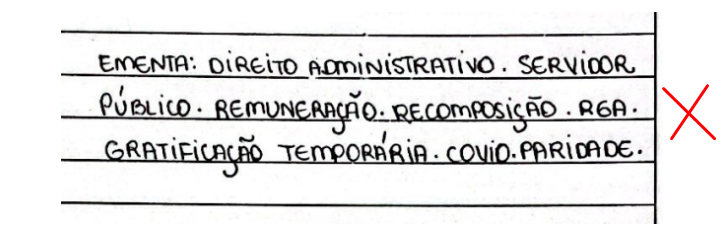 EMENTA: DIREITO ADMINISTRATIVO. SERVIDOR
PÚBLICO. REMUNERAÇÃO. RECOMPOSIÇÃO. RGA.
GRATIFICAÇÃO TEMPORÁRIA. COVID. PARIDADE.